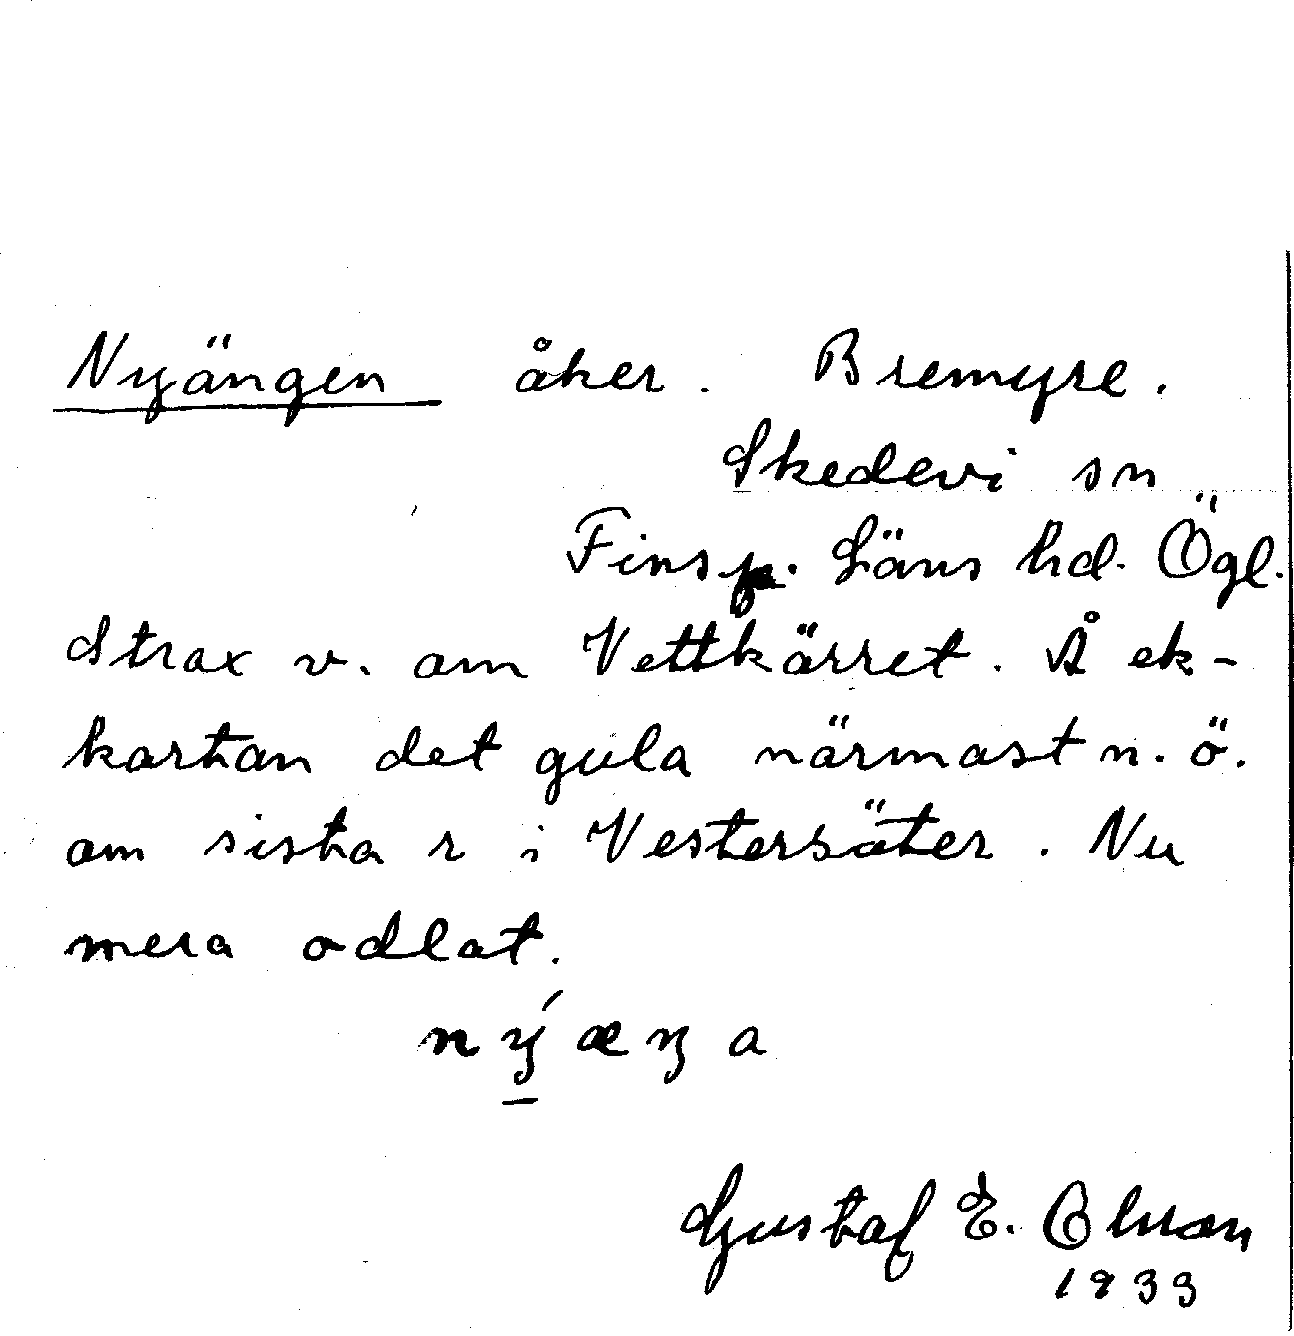 Nyängen åker. Bremyre.
Skedevi sn
Finsp. Läns hd. Ögl.
Strax v. om Vettkärret. Å ek-
kartan det gula närmast n. ö.
om sista r i Vestersäter. Nu
mera odlat.
ný̱æŋa
Gustaf E. Olsson
1933